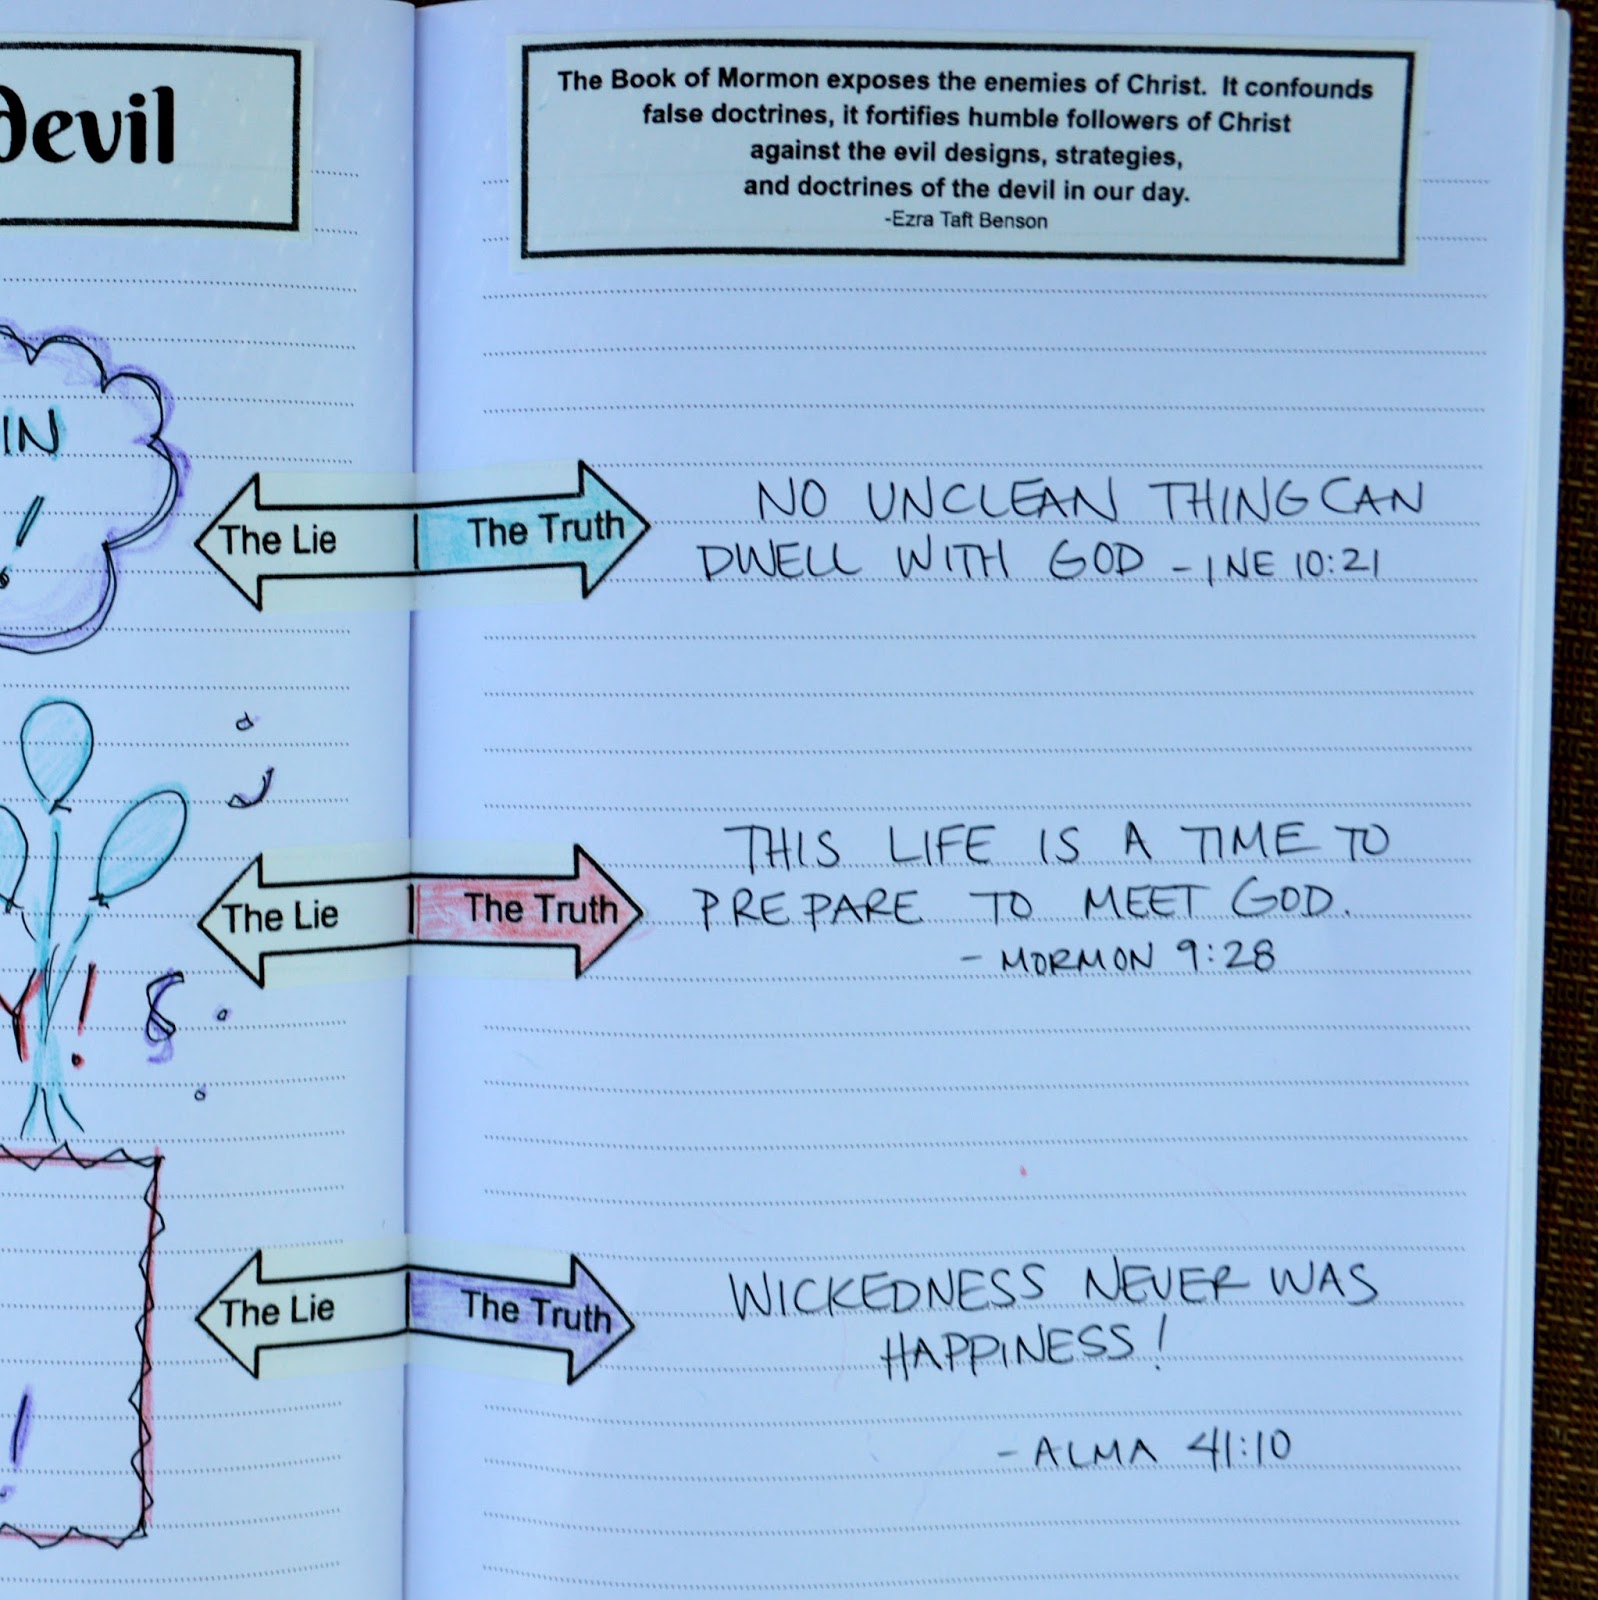 Devil
The Book of Mormon exposes the enemies of Christ. It confounds
false doctrines, it fortifies humble followers of Christ
against the evil designs, strategies,
and doctrines of the devil in our day.
-Ezra Taft Benson
IN
!
The Lie
The Truth
NO UNCLEAN THING CAN
DWELL WITH GOD - 1 NE 10:21
Y!
The Lie
The Truth
THIS LIFE IS A TIME TO
PREPARE TO MEET GOD.
- MORMON 9:28
!
The Lie
The Truth
WICKEDNESS NEVER WAS
HAPPINESS!
- ALMA 41:10